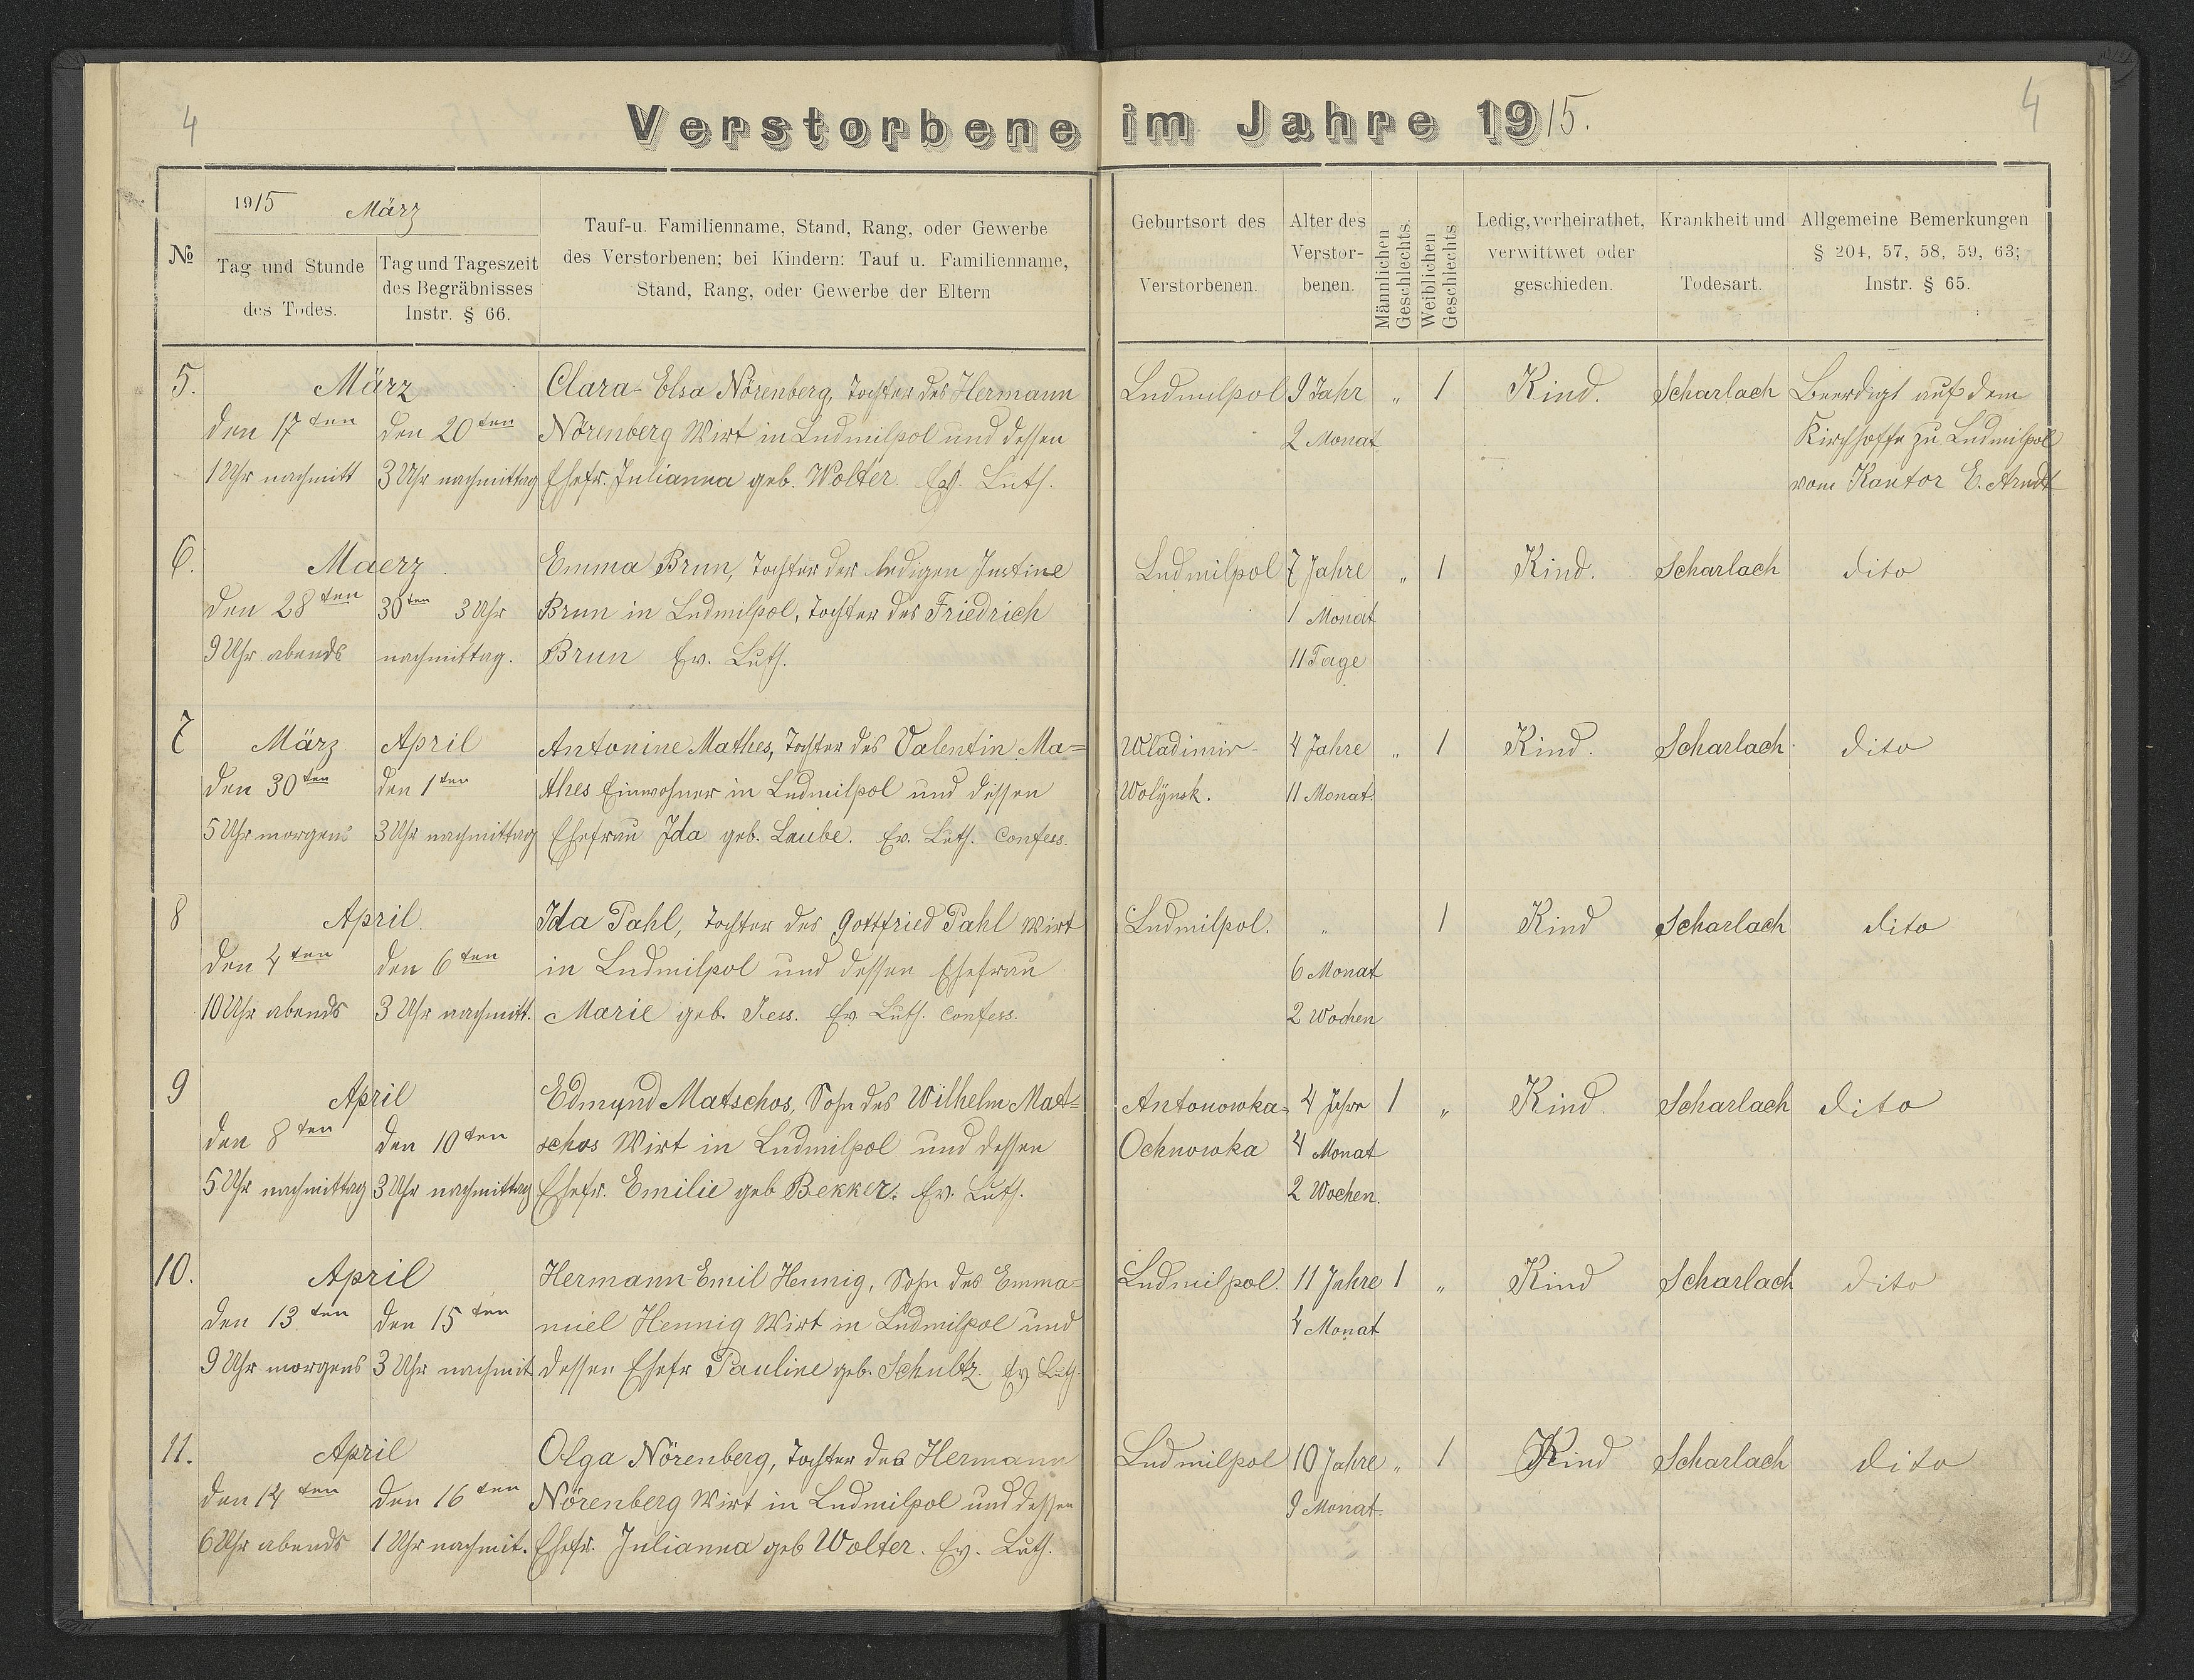 4
Verstorbene im Jahre 1915.
4
№
1915 März
Tag und Stunde
des Todes.
Tag und Tageszeit
des Begräbnisses
Instr. § 66.
Tauf-u. Familienname, Stand, Rang, oder Gewerbe
des Verstorbenen; bei Kindern: Tauf u. Familienname,
Stand, Rang, oder Gewerbe der Eltern
Geburtsort des
Verstorbenen.
Alter des
Verstor-
benen.
Männlichen
Geschlechts.
Weiblichen
Geschlechts
Ledig, verheirathet,
verwittwet oder
geschieden.
Krankheit und
Todesart.
Allgemeine Bemerkungen
§ 204, 57, 58, 59, 63;
Instr. § 65.
5. März Clara-Elsa Nörenberg, Tochter des Hermann Ludmilpol 9 Jahr „ 1 Kind. Scharlach Beerdigt auf dem
den 17ten den 20ten Nörenberg Wirt in Ludmilpol und dessen 2 Monat Kirchhoffe zu Ludmilpol
1 Uhr nachmitt 3 Uhr nachmittag Ehefr. Julianna geb. Wolter. Ev. Luth. vom Kantor E. Arndt
6. Maerz Emma Brun, Tochter der ledigen Justine Ludmilpol 7 Jahre „ 1 Kind. Scharlach dito
den 28ten 30ten 3 Uhr Brun in Ludmilpol, Tochter des Friedrich 1 Monat
9 Uhr abends nachmittag. Brun Ev. Luth. 11 Tage
7 März April Antonine Mathes, Tochter des Valentin Ma= Wladimir- 4 Jahre „ 1 Kind. Scharlach dito
den 30ten den 1ten thes Einwohner in Ludmilpol und dessen Wolÿnsk. 11 Monat.
5 Uhr morgens 3 Uhr nachmittag Ehefrau Ida geb. Laube. Ev. Luth. Confess.
8 April. Ida Pahl, Tochter des Gottfried Pahl Wirt Ludmilpol. „ 1 Kind Scharlach dito
den 4ten den 6ten in Ludmilpol und dessen Ehefrau 6 Monat
10 Uhr abends 3 Uhr nachmitt. Marie geb. Jess. Ev. Luth. Confess. 2 Wochen
9 April Edmund Matschos, Sohn des Wilhelm Mat= Antonowka= 4 Jahre 1 „ Kind. Scharlach dito
den 8ten den 10ten schos Wirt in Ludmilpol und dessen Ochnowka 4 Monat
5 Uhr nachmittag 3 Uhr nachmittag Ehefr. Emilie geb Bekker. Ev. Luth. 2 Wochen.
10. April Hermann-Emil Hennig, Sohn des Emma= Ludmilpol. 11 Jahre 1 „ Kind Scharlach dito
den 13ten den 15ten nuel Hennig Wirt in Ludmilpol und 4 Monat
9 Uhr morgens 3 Uhr nachmit dessen Ehefr Pauline geb. Schultz. Ev Luth.
11. April Olga Nörenberg, Tochter des Hermann Ludmilpol 10 Jahre „ 1 Kind Scharlach dito
den 14ten den 16ten Nörenberg Wirt in Ludmilpol und dessen 9 Monat.
6 Uhr abends 1 Uhr nachmit. Ehefr. Julianna geb Wolter. Ev. Luth.